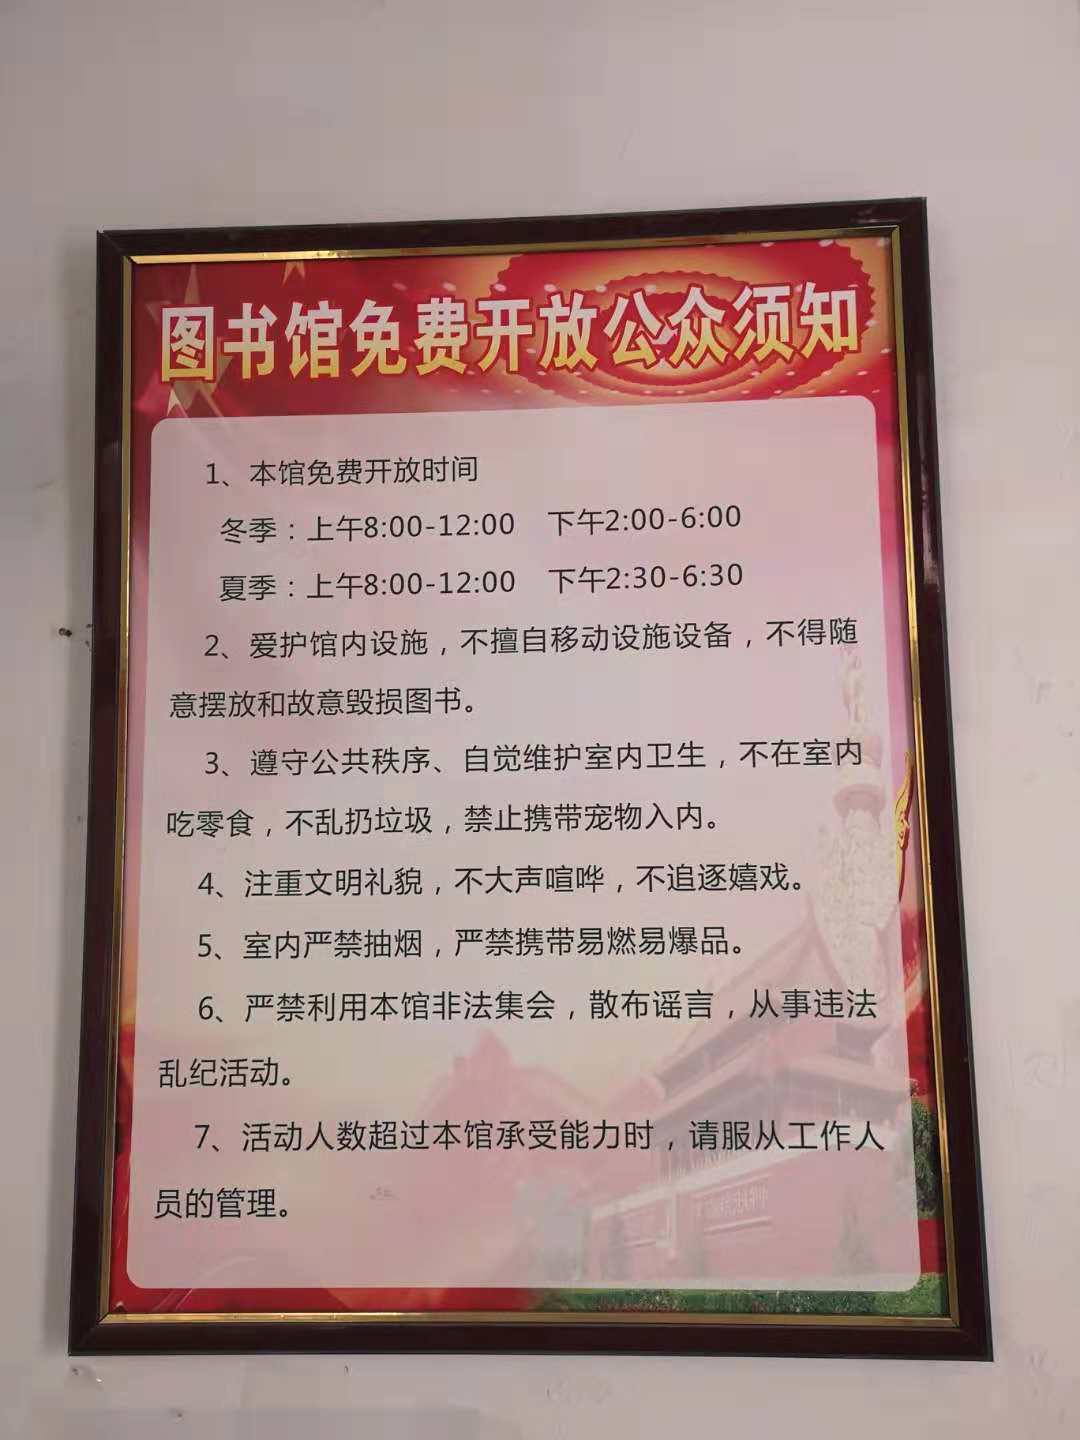 图书馆免费开放公众须知
1、本馆免费开放时间
冬季：上午8:00-12:00 下午2:00-6:00
夏季：上午8:00-12:00 下午2:30-6:30
2、爱护馆内设施，不擅自移动设施设备，不得随
意摆放和故意毁损图书。
3、遵守公共秩序、自觉维护室内卫生，不在室内
吃零食，不乱扔垃圾，禁止携带宠物入内。
4、注重文明礼貌，不大声喧哗，不追逐嬉戏。
5、室内严禁抽烟，严禁携带易燃易爆品。
6、严禁利用本馆非法集会，散布谣言，从事违法
乱纪活动。
7、活动人数超过本馆承受能力时，请服从工作人
员的管理。